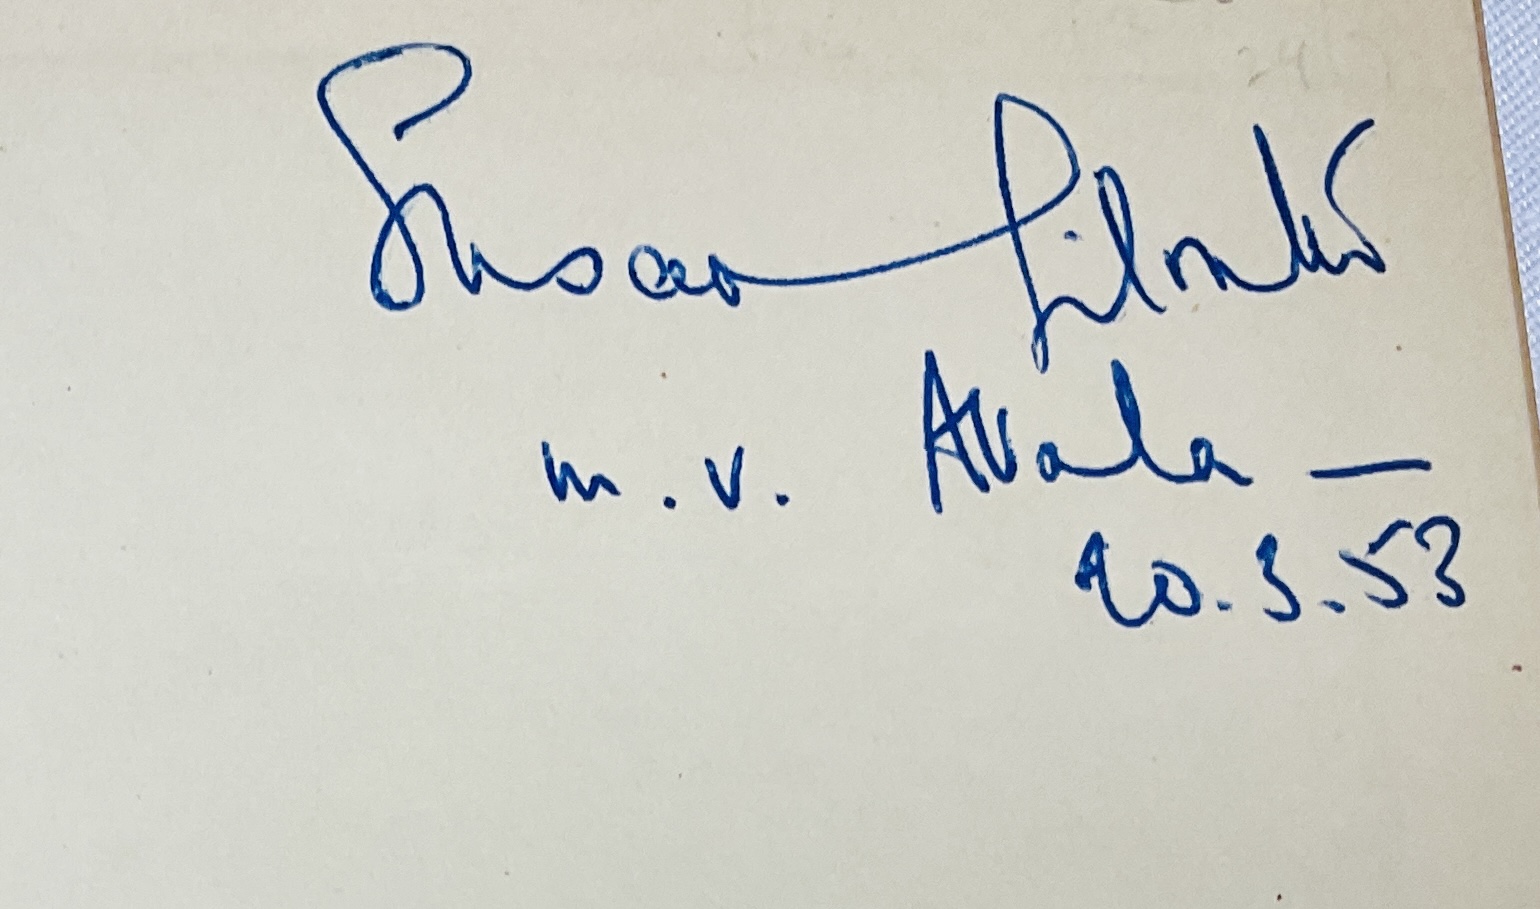 Susan
m.v. Avala —
20.3.53